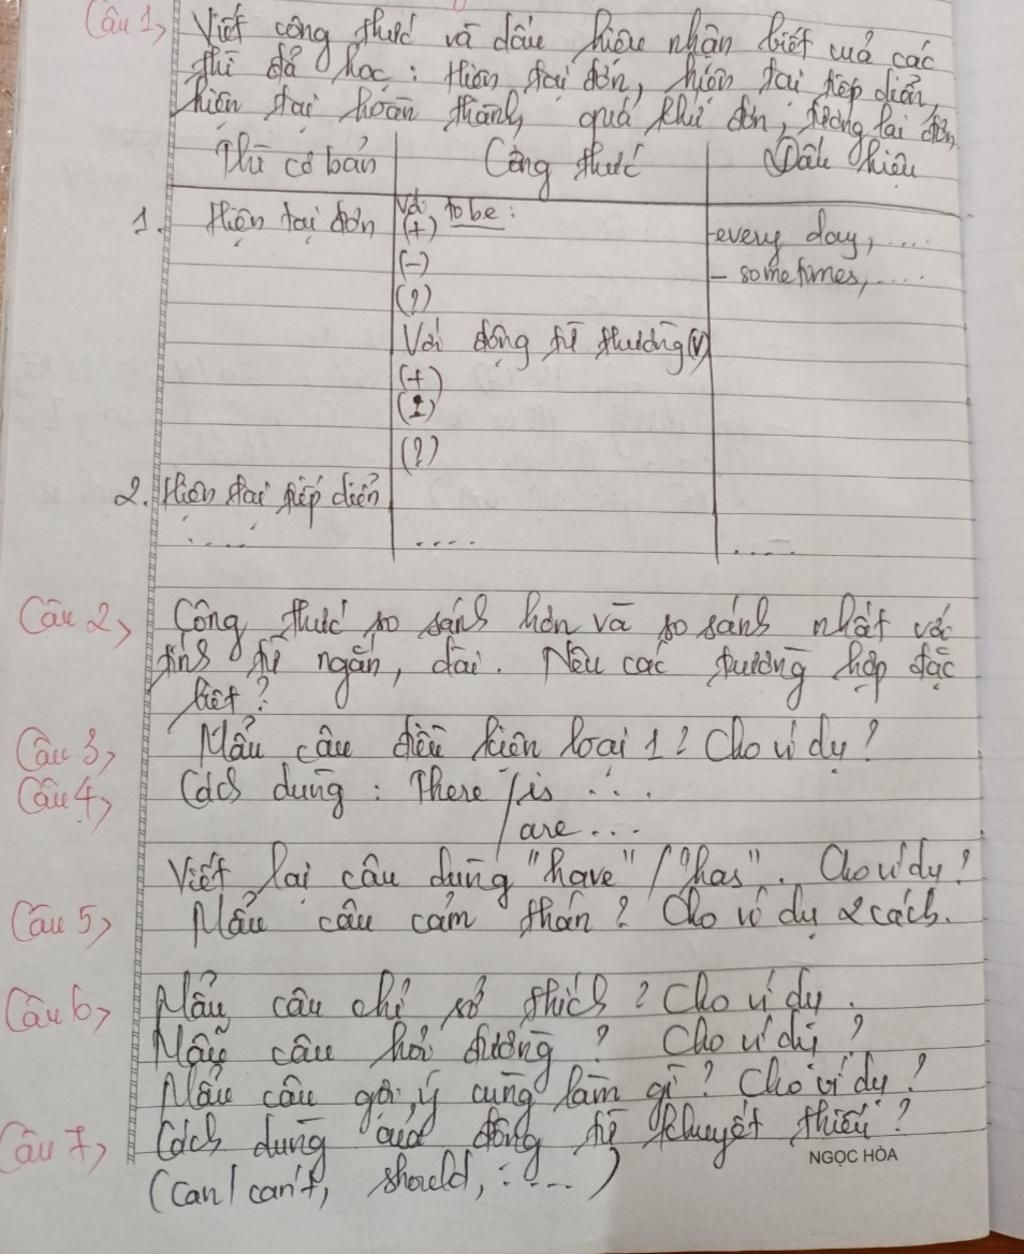 Câu 1, Viết công thức và dấu hiệu nhận biết của các
thì đã học: Hiện tại đơn, hiện tại tiếp diễn,
hiện tại hoàn thành, quá khứ đơn, tương lai đơn
Thì cơ bản Công thức Dấu hiệu
1. Hiện tại đơn Với to be: - every day, ....
(+)
(-) - sometimes, ....
(?)
Với động từ thường (V)
(+)
(-)
(?)
2. Hiện tại tiếp diễn
..... .... .....
Câu 2, Công thức so sánh hơn và so sánh nhất với
tính từ ngắn, dài. Nêu các trường hợp đặc
biệt?
Câu 3, Mẫu câu điều kiện loại 1? Cho ví dụ?
Câu 4, Cách dùng: There / is ....
/ are ...
Viết lại câu dùng "have" / "has". Cho ví dụ?
Câu 5, Mẫu câu cảm thán? Cho ví dụ 2 cách.
Câu 6, Mẫu câu chỉ sở thích? Cho ví dụ.
Mẫu câu hỏi đường? Cho ví dụ?
Mẫu câu gợi ý cùng làm gì? Cho ví dụ?
Câu 7, Cách dùng của động từ khuyết thiếu?
NGỌC HÒA
(can / can't, should, .....)